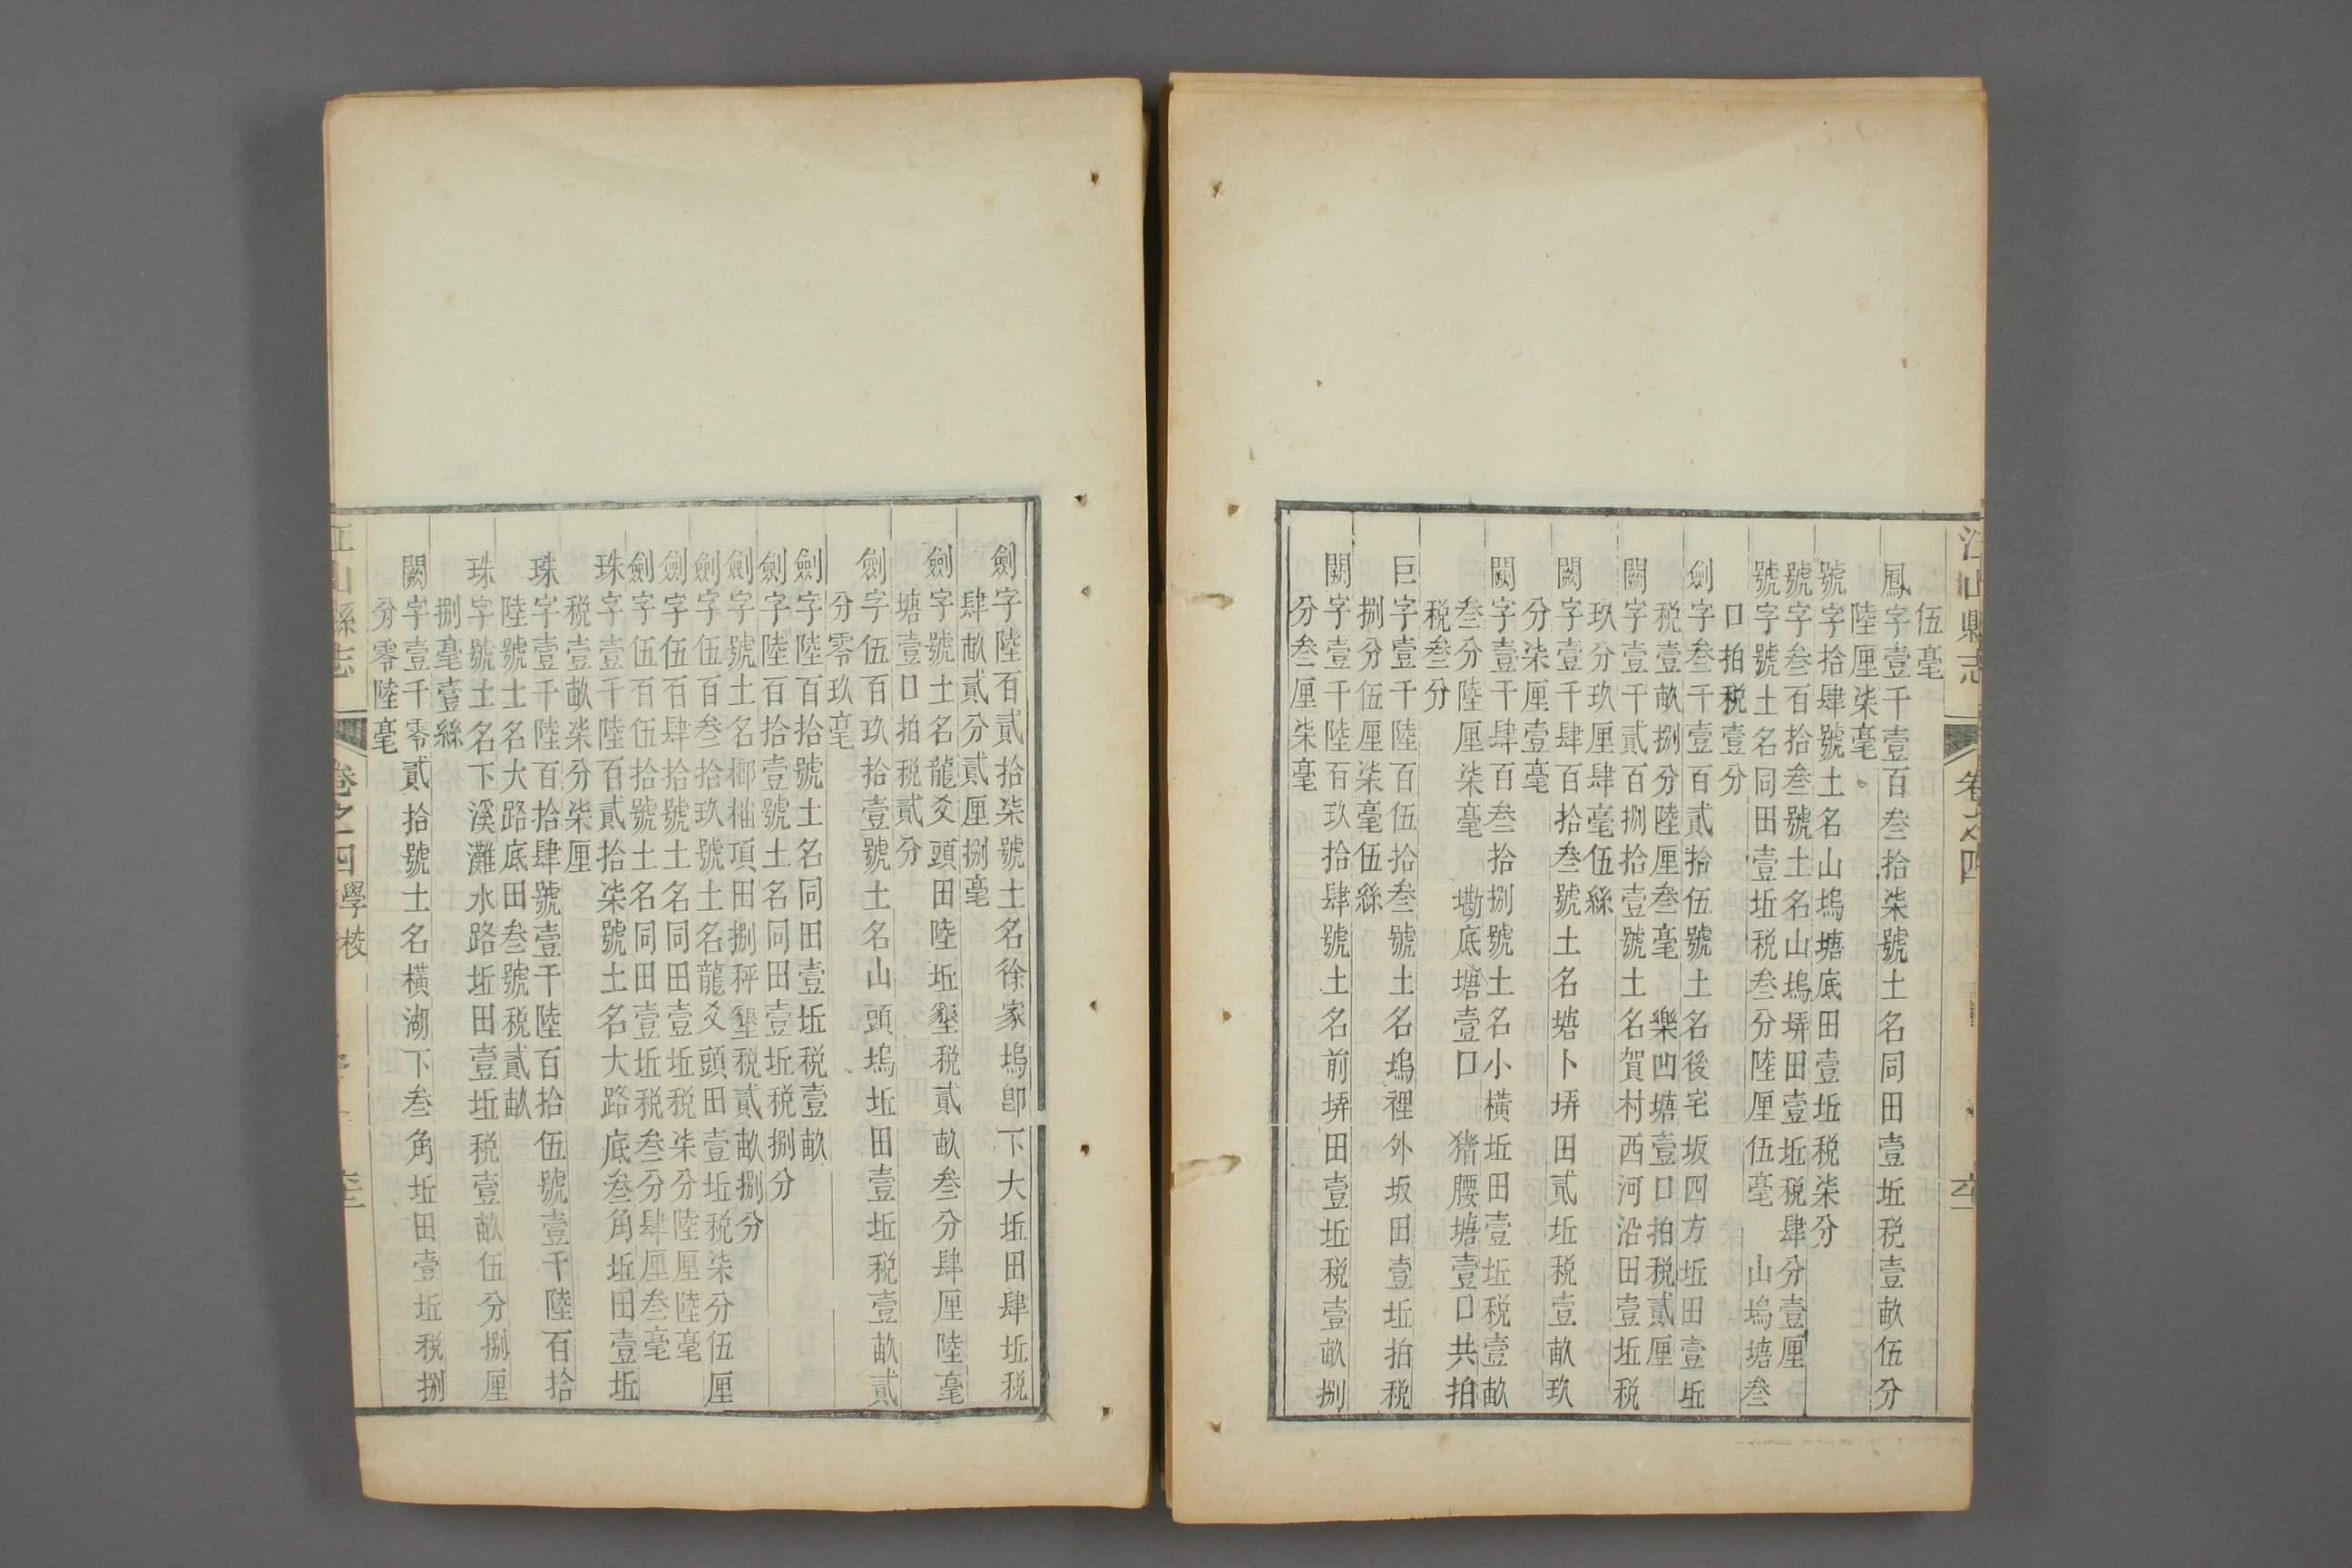 江山縣志
卷之四
伍毫
鳳字壹千壹百叁拾柒號土名同田壹坵税壹畝伍分
陸厘柒毫
號字拾肆號土名山塢塘底田壹坵税柒分
號字叁百拾叁號土名山塢塝田壹坵税肆分壹厘
號字號土名同田壹坵税叁分陸厘伍毫 山塢塘叁
口拍税壹分
劍字叁千壹百貳拾伍號土名後宅坂四方坵田壹坵
税壹畝捌分陸厘叁毫 樂凹塘壹口拍税貳厘
闕字壹千貳百捌拾壹號土名賀村西河沿田壹坵税
玖分玖厘肆毫伍絲
闕字壹千肆百拾叁號土名塘卜塝田貳坵税壹畝玖
分柒厘壹毫
闕字壹千肆百叁拾捌號土名小橫坵田壹坵税壹畝
叁分陸厘柒毫 墈底塘壹口 猪腰塘壹口共拍
税叁分
巨字壹千陸百伍拾叁號土名塢裡外坂田壹坵拍税
捌分伍厘柒毫伍絲
闕字壹千陸百玖拾肆號土名前塝田壹坵税壹畝捌
分叁厘柒毫
劍字陸百貳拾柒號土名徐家塢卽下大坵田肆坵税
肆畝貳分貳厘捌毫
劍字號土名龍爻頭田陸坵墾税貳畝叁分肆厘陸毫
塘壹口拍税貳分
劍字伍百玖拾壹號土名山頭塢坵田壹坵税壹畝貳
分零玖毫
劍字陸百拾號土名同田壹坵税壹畝
劍字陸百拾壹號土名同田壹坵税捌分
劍字號土名榔樚項田捌秤墾税貳畝捌分
劍字伍百叁拾玖號土名龍爻頭田壹坵税柒分伍厘
劍字伍百肆拾號土名同田壹坵税柒分陸厘陸毫
劍字伍百伍拾號土名同田壹坵税叁分肆厘叁毫
珠字壹千陸百貳拾柒號土名大路底叁角坵田壹坵
税壹畝柒分柒厘
珠字壹千陸百拾肆號壹千陸百拾伍號壹千陸百拾
陸號土名大路底田叁號税貳畝
珠字號土名下溪灘水路坵田壹坵税壹畝伍分捌厘
捌毫壹絲
闕字壹千零貳拾號土名橫湖下叁角坵田壹坵税捌
分零陸毫
江山縣志
卷之四學校